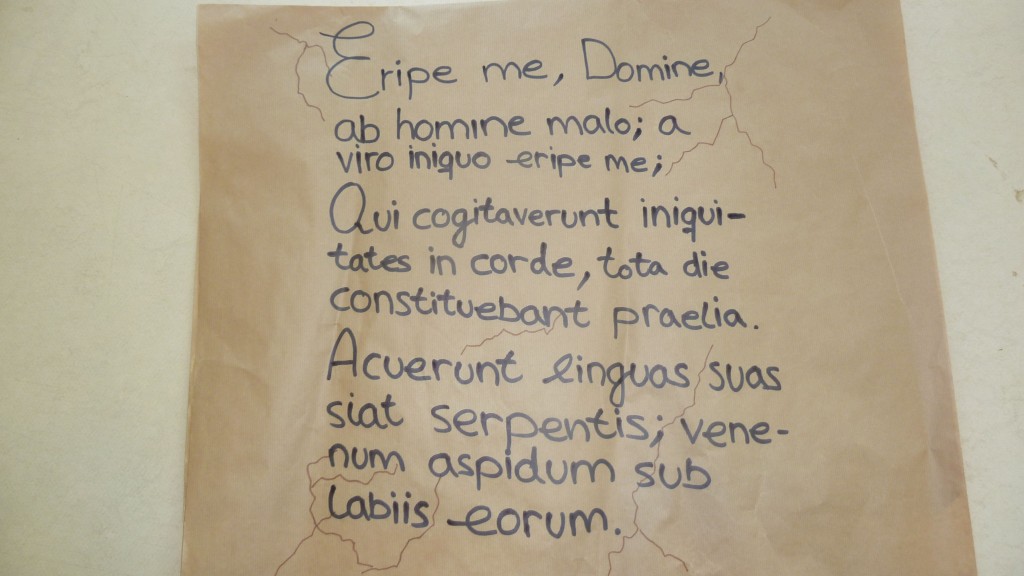 Eripe me, Domine,
ab homine malo; a
viro iniquo eripe me;
Qui cogitaverunt iniqui-
tates in corde, tota die
constituebant praelia.
Acuerunt linguas suas
siat serpentis; vene-
num aspidum sub
labiis eorum.